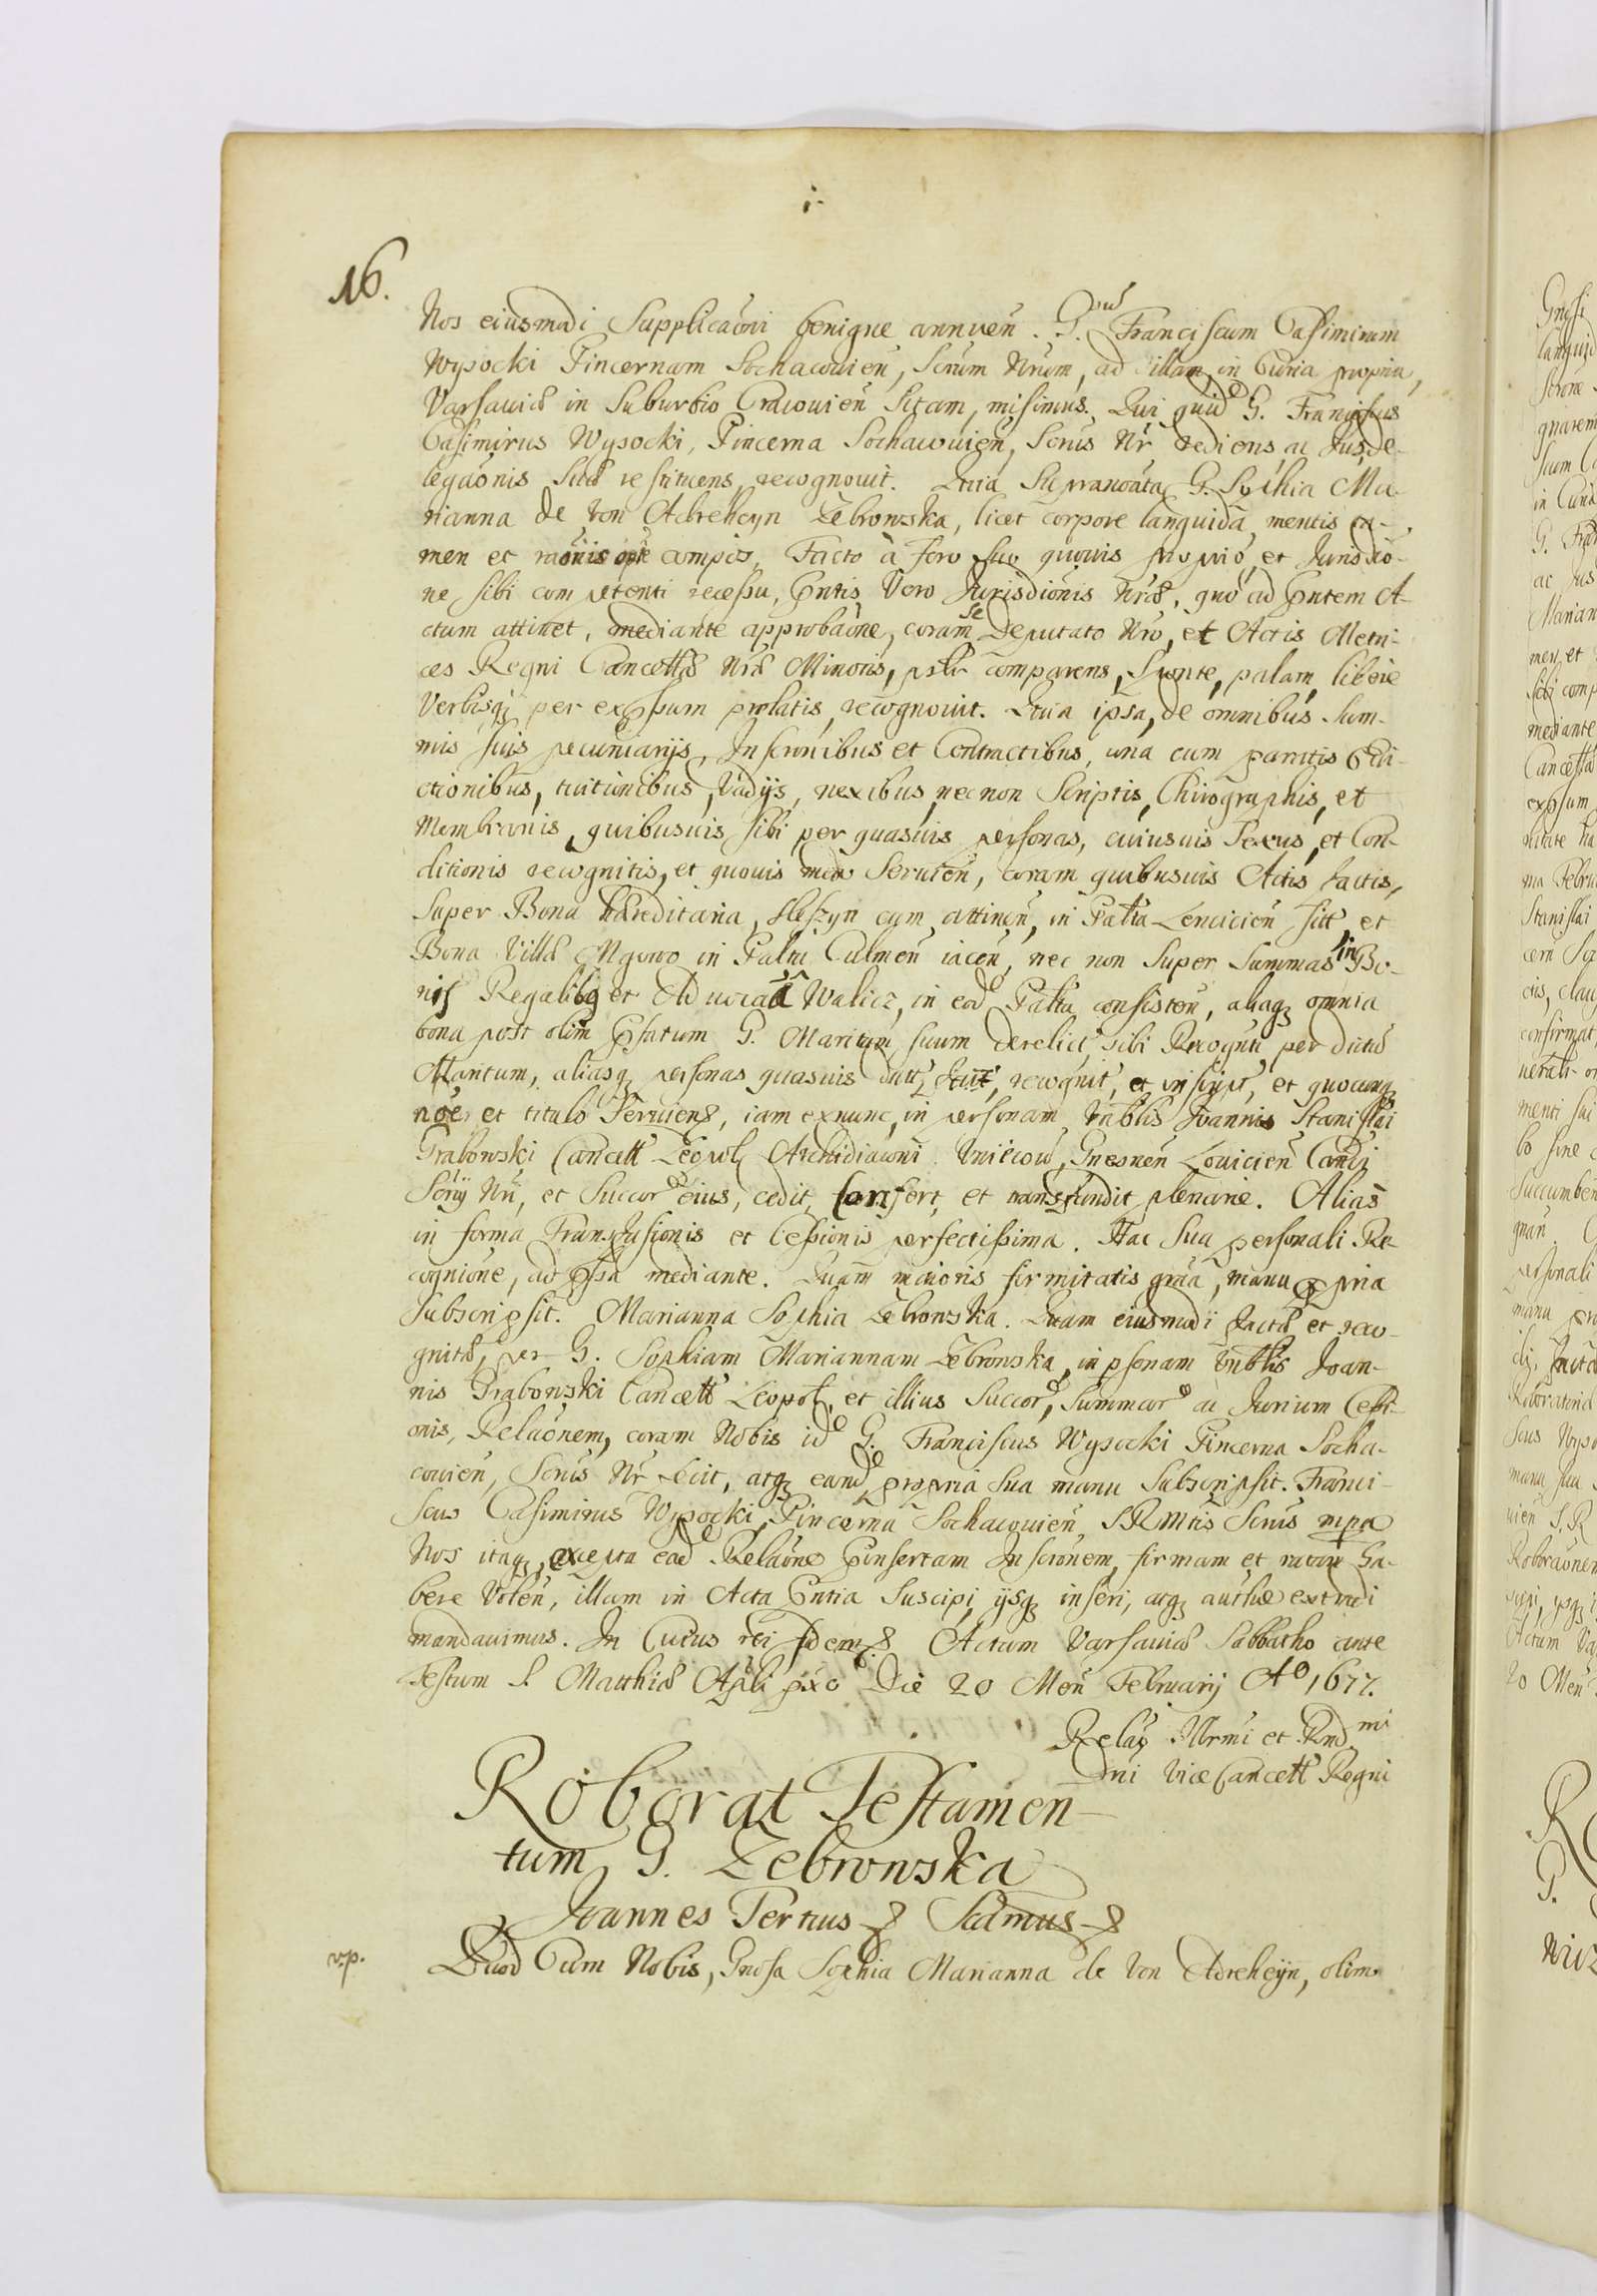 16.
Nos eiusmodi Supplicaõni benigne annuen̄. G. Franciscum Casimirum
Wysocki Pincernam Sochacouien̄, Scrūm Nrūm, ad illam in Curia propria,
Varsauiæ in Suburbio Cracouien̄ Sitam, misimus. Qui quid G. Franciscus
Casimirus Wysocki, Pincerna Sochacouien̄, Scrūs Nr̄ rediens, ac Jus de-
legaõnis suæ restituens, recognouit. Quia Supranoāta G. Sophia Ma-
rianna de Von Adreheyn Zebrowska, licet corpore languida, mentis ta-
men et raõnis compos, Facto à foro suo quouis proprio, et Jurisdiõ-
ne sibi competenti recessu, Pn̄tis Vero Jurisdiõnis Nr̄æ, quo ad Pn̄tem A-
ctum attinet, mediante approbaõne, coram Se Deputato Nrō, et Actis Metri-
ces Regni Cancell̄æ Nr̄æ Minoris, pslr̄ comparens, Sponte, palam, libere
Verbisq₃ per expssum prolatis, recognouit. Quia ipsa, de omnibus Sum-
mis suis pecuniarijs, Inscrõnibus et Contractibus, una cum paratis Eui-
ctionibus, tuitionibus, Vadijs, nexibus, necnon Scriptis, Chirographis, et
Membranis, quibusuis sibi per quasuis personas, cuiusuis Sexus, et Con-
ditionis recognitis, et quouis modo Seruien̄, coram quibusuis Actis factis,
Super Bona hæreditaria, Sleszyn cum attinen̄, in Paltū Lencicien̄ sitt, et
Bona Villæ Mgowo in Paltu Culmen̄ iacen̄, nec non Super Summas in Bo-
nis Regalibq et Aduocatiâ Walicz, in eod Paltū consisten̄, aliaq₃ omnia
bona post olim Pfatum G. Maritum suum derelict, sibi Recognit, per dictū
Maritum, aliasq₃ personas quasuis datt, recognit, et inscript, et quocunq₃
noē et titulo Seruiens, iam ex nunc, in personam Vn̄blis Joannis Stanislai
Grabowski Cancell Leopol Archidiaconi Vniecow, Gnesnen̄ Louicien̄ Canci
Scrij Nr̄i, et Succor eius, cedit, Confert, et transfundit plenarie. Alias
in forma Transfusionis et Cessionis perfectissima. Hac Sua personali Re-
cogniõne, ad pssa mediante. Quam maioris firmitatis grā, manu ppria
Subscripsit. Marianna Sophia Zebrowska. Quam eiusmodi factæ et reco-
gnitæ, per G. Sophiam Mariannam Zebrowska, in psonam Vn̄blis Joan-
nis Grabowski Cancell Leopol, et illius Succor, Summar ac Jurium Cessi-
onis, Relaõnem, coram Nobis id G. Franciscus Wysocki Pincerna Socha-
couien̄, Scrūs Nr̄ fecit, atq₃ eand propria Sua manu Subscripsit. Franci-
scus Casimirus Wysocki Pincerna Sochacouien̄ SRMtis Scrūs mpa
Nos itaq₃, excepta ead Relaõne Pinsertam Inscrõnem, firmam et ratam ha-
bere Volen̄, illam in Acta Pn̄tia Suscipi, ijsq₃ inseri, atq₃ authæ extradi
mandauimus. In Cuius rei fidem &. Actum Varsauiæ Sabbatho ante
Festum S. Matthiæ Apli pxo Die 20 Men̄ February Ao 1677.
Relaõ Illrmi et Rnd mi
Dni Vice Cancell Regni
Roborat Testamen-
tum G. Zebrowska
Joannes Tertius & Salmus &
vp. Quod Cum Nobis, Gnosa Sophia Marianna de Von Adreheyn, olim